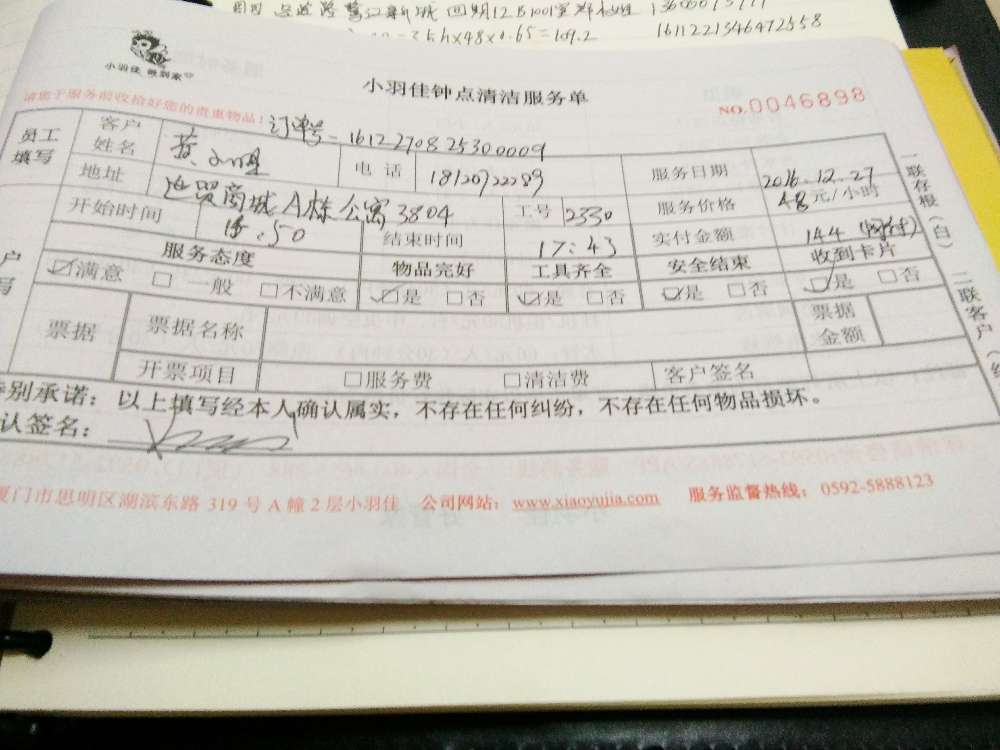 四期12B1001室
=3.5h×48×0.65=109.2
1611221346472558
小羽佳 做到家
小羽佳钟点清洁服务单
请您于服务前收拾好您的贵重物品!
订单号
1612270825300009
NO.0046898
员工填写
客户姓名
电话
18120722289
服务日期
2016.12.27
地址
商城A栋公寓3804
工号
2330
服务价格
48元/小时
开始时间
50
结束时间
17:43
实付金额
144(网付)
服务态度
物品完好
工具齐全
安全结束
收到卡片
☑满意 □一般 □不满意
☑是 □否
☑是 □否
☑是 □否
☑是 □否
户
写
票据
票据名称
票据金额
开票项目
□服务费
□清洁费
客户签名
特别承诺:以上填写经本人确认属实,不存在任何纠纷,不存在任何物品损坏。
认签名:
厦门市思明区湖滨东路 319 号 A 幢 2 层小羽佳 公司网站:www.xiaoyujia.com 服务监督热线:0592-5888123
一联存根(白)
二联客户(